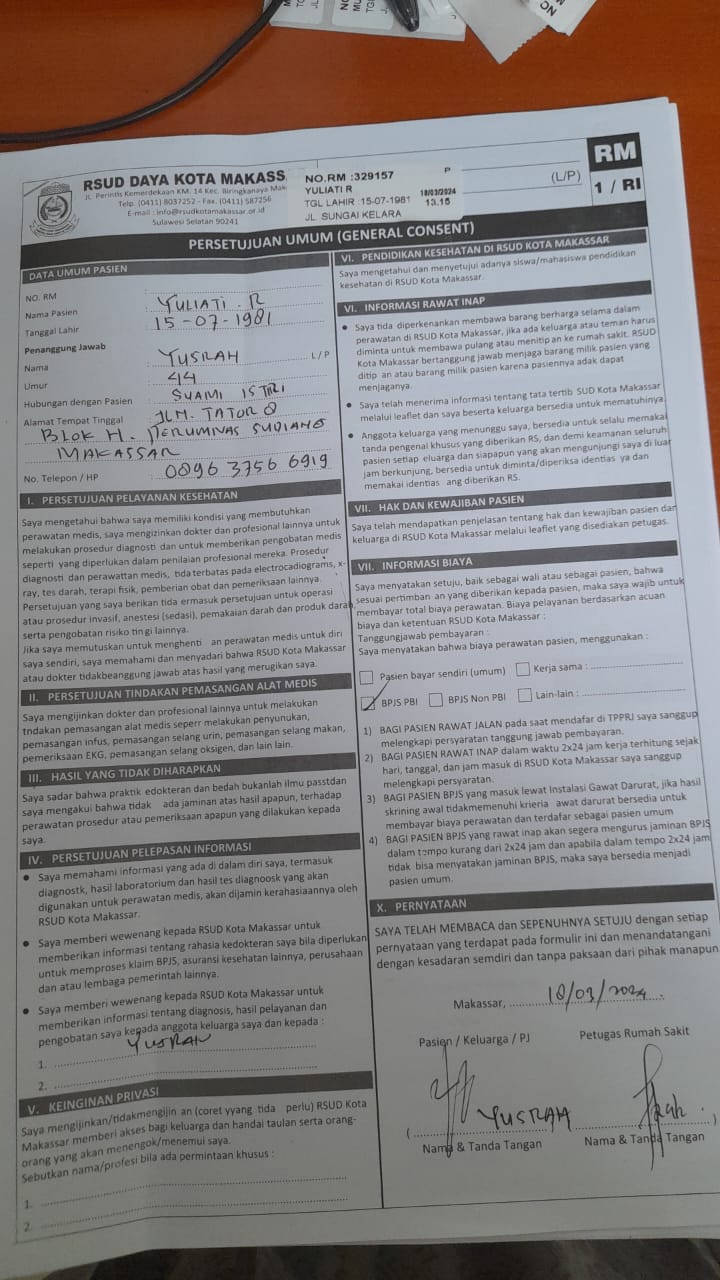 RSUD DAYA KOTA MAKASS
JL. Perintis Kemerdekaan KM. 14 Kec. Biringkanaya Mak
Telp. (0411) 8037252 - Fax. (0411) 587256
E-mail : info@rsudkotamakassar.or.id
Sulawesi Selatan 90241
NO.RM :329157 P
YULIATI R 18/03/2024
TGL LAHIR :15-07-1981 13.15
JL SUNGAI KELARA
(L/P)
RM
1 / RI
PERSETUJUAN UMUM (GENERAL CONSENT)
DATA UMUM PASIEN
NO. RM
Nama Pasien : YULIATI . R
Tanggal Lahir : 15-07-1981
Penanggung Jawab
Nama : YUSRAH L / P
Umur : 44
Hubungan dengan Pasien : SUAMI ISTRI
Alamat Tempat Tinggal : JLN. TATOR 8
BLOK H. PERUMNAS SUDIANG
MAKASSAR
No. Telepon / HP : 0896 3756 6919
I. PERSETUJUAN PELAYANAN KESEHATAN
Saya mengetahui bahwa saya memiliki kondisi yang membutuhkan
perawatan medis, saya mengizinkan dokter dan profesional lainnya untuk
melakukan prosedur diagnosti dan untuk memberikan pengobatan medis
seperti yang diperlukan dalam penilaian profesional mereka. Prosedur
diagnosti dan perawattan medis, tida terbatas pada electrocadiograms, x-
ray, tes darah, terapi fisik, pemberian obat dan pemeriksaan lainnya.
Persetujuan yang saya berikan tida ermasuk persetujuan untuk operasi
atau prosedur invasif, anestesi (sedasi), pemakaian darah dan produk darah,
serta pengobatan risiko tin gi lainnya.
Jika saya memutuskan untuk menghenti an perawatan medis untuk diri
saya sendiri, saya memahami dan menyadari bahwa RSUD Kota Makassar
atau dokter tidakbeanggung jawab atas hasil yang merugikan saya.
II. PERSETUJUAN TINDAKAN PEMASANGAN ALAT MEDIS
Saya mengijinkan dokter dan profesional lainnya untuk melakukan
tndakan pemasangan alat medis seperr melakukan penyunukan,
pemasangan infus, pemasangan selang urin, pemasangan selang makan,
pemeriksaan EKG, pemasangan selang oksigen, dan lain lain.
III. HASIL YANG TIDAK DIHARAPKAN
Saya sadar bahwa praktik edokteran dan bedah bukanlah ilmu passtdan
saya mengakui bahwa tidak ada jaminan atas hasil apapun, terhadap
perawatan prosedur atau pemeriksaan apapun yang dilakukan kepada
saya.
IV. PERSETUJUAN PELEPASAN INFORMASI
● Saya memahami informasi yang ada di dalam diri saya, termasuk
diagnostk, hasil laboratorium dan hasil tes diagnoosk yang akan
digunakan untuk perawatan medis, akan dijamin kerahasiaannya oleh
RSUD Kota Makassar.
● Saya memberi wewenang kepada RSUD Kota Makassar untuk
memberikan informasi tentang rahasia kedokteran saya bila diperlukan
untuk memproses klaim BPJS, asuransi kesehatan lainnya, perusahaan
dan atau lembaga pemerintah lainnya.
● Saya memberi wewenang kepada RSUD Kota Makassar untuk
memberikan informasi tentang diagnosis, hasil pelayanan dan
pengobatan saya kepada anggota keluarga saya dan kepada :
1. YUSRAH
2.
V. KEINGINAN PRIVASI
Saya mengijinkan/tidakmengijin an (coret yyang tida perlu) RSUD Kota
Makassar memberi akses bagi keluarga dan handai taulan serta orang-
orang yang akan menengok/menemui saya.
Sebutkan nama/profesi bila ada permintaan khusus :
1.
2.
VI. PENDIDIKAN KESEHATAN DI RSUD KOTA MAKASSAR
Saya mengetahui dan menyetujui adanya siswa/mahasiswa pendidikan
kesehatan di RSUD Kota Makassar.
VI. INFORMASI RAWAT INAP
● Saya tida diperkenankan membawa barang berharga selama dalam
perawatan di RSUD Kota Makassar, jika ada keluarga atau teman harus
diminta untuk membawa pulang atau menitip an ke rumah sakit. RSUD
Kota Makassar bertanggung jawab menjaga barang milik pasien yang
ditip an atau barang milik pasien karena pasiennya adak dapat
menjaganya.
● Saya telah menerima informasi tentang tata tertib SUD Kota Makassar
melalui leaflet dan saya beserta keluarga bersedia untuk mematuhinya.
● Anggota keluarga yang menunggu saya, bersedia untuk selalu memakai
tanda pengenal khusus yang diberikan RS, dan demi keamanan seluruh
pasien setiap eluarga dan siapapun yang akan mengunjungi saya di luar
jam berkunjung, bersedia untuk diminta/diperiksa identias ya dan
memakai identias ang diberikan RS.
VII. HAK DAN KEWAJIBAN PASIEN
Saya telah mendapatkan penjelasan tentang hak dan kewajiban pasien dan
keluarga di RSUD Kota Makassar melalui leaflet yang disediakan petugas.
VII. INFORMASI BIAYA
Saya menyatakan setuju, baik sebagai wali atau sebagai pasien, bahwa
sesuai pertimban an yang diberikan kepada pasien, maka saya wajib untuk
membayar total biaya perawatan. Biaya pelayanan berdasarkan acuan
biaya dan ketentuan RSUD Kota Makassar :
Tanggungjawab pembayaran :
Saya menyatakan bahwa biaya perawatan pasien, menggunakan :
Pasien bayar sendiri (umum) Kerja sama :
BPJS PBI BPJS Non PBI Lain-lain :
1) BAGI PASIEN RAWAT JALAN pada saat mendafar di TPPRJ saya sanggup
melengkapi persyaratan tanggung jawab pembayaran.
2) BAGI PASIEN RAWAT INAP dalam waktu 2x24 jam kerja terhitung sejak
hari, tanggal, dan jam masuk di RSUD Kota Makassar saya sanggup
melengkapi persyaratan.
3) BAGI PASIEN BPJS yang masuk lewat Instalasi Gawat Darurat, jika hasil
skrining awal tidakmemenuhi krieria awat darurat bersedia untuk
membayar biaya perawatan dan terdafar sebagai pasien umum
4) BAGI PASIEN BPJS yang rawat inap akan segera mengurus jaminan BPJS
dalam tempo kurang dari 2x24 jam dan apabila dalam tempo 2x24 jam
tidak bisa menyatakan jaminan BPJS, maka saya bersedia menjadi
pasien umum.
X. PERNYATAAN
SAYA TELAH MEMBACA dan SEPENUHNYA SETUJU dengan setiap
pernyataan yang terdapat pada formulir ini dan menandatangani
dengan kesadaran semdiri dan tanpa paksaan dari pihak manapun
Makassar, 18/03/2024
Pasien / Keluarga / PJ Petugas Rumah Sakit
( YUSRAH
Nama & Tanda Tangan Nama & Tanda Tangan